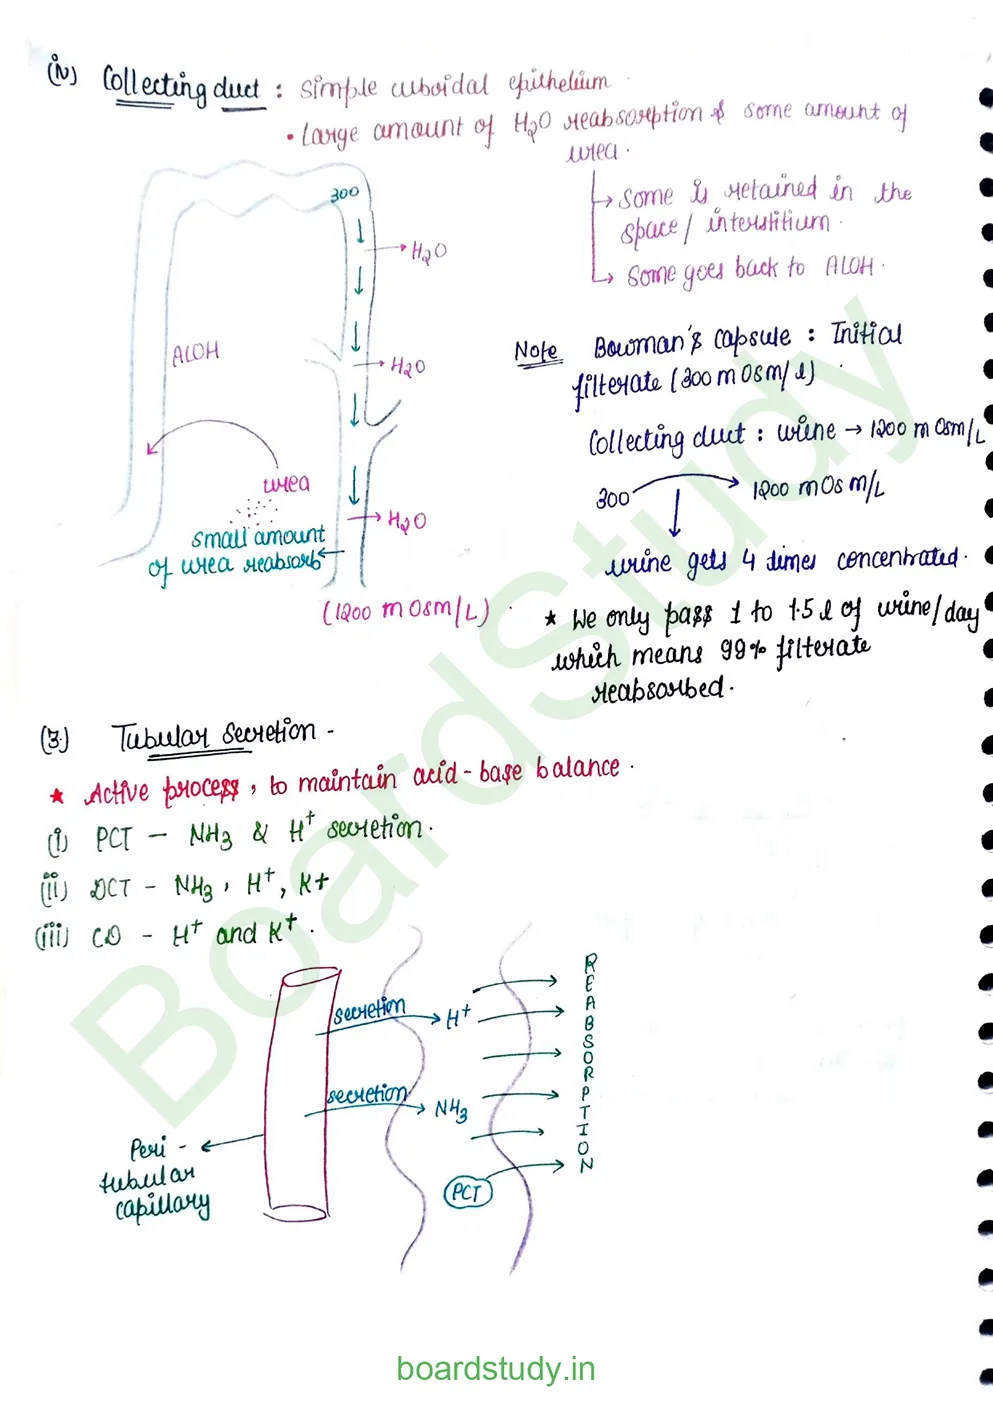 (iv) Collecting duct : simple cuboidal epithelium.
• Large amount of H₂O reabsorption & some amount of
urea.
→ some is retained in the
space / interstitium.
→ some goes back to ALOH.
300
H₂O
H₂O
ALOH
urea
H₂O
small amount
of urea reabsorb
(1200 m Osm/L)
Note Bowman's capsule : Initial
filterate (300 m Osm/l)
Collecting duct : urine → 1200 m Osm/L
300 → 1200 m Os m/L
urine gets 4 times concentrated.
★ We only pass 1 to 1.5 l of urine/day
which means 99% filterate
reabsorbed.
(3) Tubular Secretion -
★ Active process, to maintain acid-base balance.
(i) PCT – NH₃ & H⁺ secretion.
(ii) DCT – NH₃, H⁺, K+
(iii) CD – H⁺ and K⁺.
secretion → H⁺
secretion → NH₃
Peri -
tubular
capillary
PCT
REABSORPTION
BoardStudy
boardstudy.in